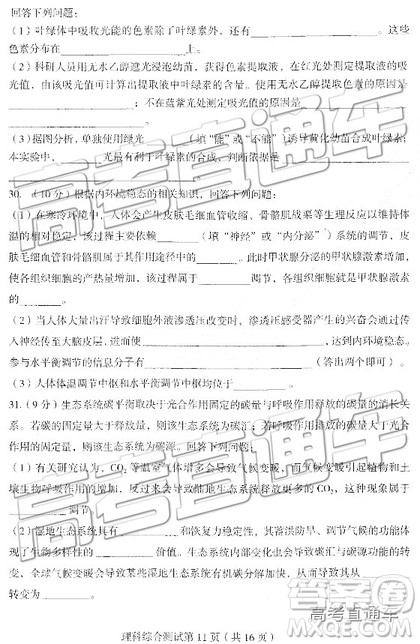 回答下列问题：
（1）叶绿体中吸收光能的色素除了叶绿素外，还有____。这些
色素分布在____上。
（2）科研人员用无水乙醇遮光浸泡幼苗，获得色素提取液，在红光处测定提取液的吸
光值，由该吸光值可计算出提取液中叶绿素的含量。使用无水乙醇提取色素的原因是
____；不在蓝紫光处测定吸光值的原因是
____。
（3）据图分析，单独使用绿光____（填“能”或“不能”）诱导黄化幼苗合成叶绿素；
本实验中，____光最有利于叶绿素的合成，判断依据____。
30．（10分）根据内环境稳态的相关知识，回答下列问题：
（1）在寒冷环境中，人体会产生皮肤毛细血管收缩、骨骼肌战栗等生理现象，以维持体
温的相对稳定，该过程主要依赖____（填“神经”或“内分泌”）系统的调节，皮
肤毛细血管和骨骼肌属于其作用途径中的____。此时甲状腺分泌的甲状腺激素增多，
使各组织细胞的产热量增加，该过程属于____调节，各组织细胞就是甲状腺激素
的____。
（2）当人体大量出汗导致细胞外液渗透压改变时，渗透压感受器产生的兴奋会通过传
入神经传至大脑皮层，进而使____，达到内环境稳态。
参与水平衡调节的信息分子有____（答出两个即可）。
（3）人体体温调节中枢和水平衡调节中枢均位于____。
31.（9分）生态系统碳平衡取决于光合作用固定的碳量与呼吸作用释放的碳量的消长关
系。若碳的固定量大于释放量，则该生态系统为碳汇；若呼吸作用释放的碳量大于光合
作用的固定量，则该生态系统为碳源。回答下列问题：
（1）有关研究认为，CO₂等温室气体增多会导致气候变暖，而气候变暖引起植物和土
壤生物呼吸作用增加，反过来会导致陆地生态系统释放更多的CO₂，这种现象属于
____调节。
（2）湿地生态系统具有____和恢复力稳定性，其蓄洪防旱、调节气候的功能体
现了生物多样性的____价值。生态系统内部变化也会导致碳汇与碳源功能的转
变，全球气候变暖会导致某些湿地生态系统有机碳分解加快，从而导致其从____
转变为____。
理科综合测试第11页（共16页）
高考直通车